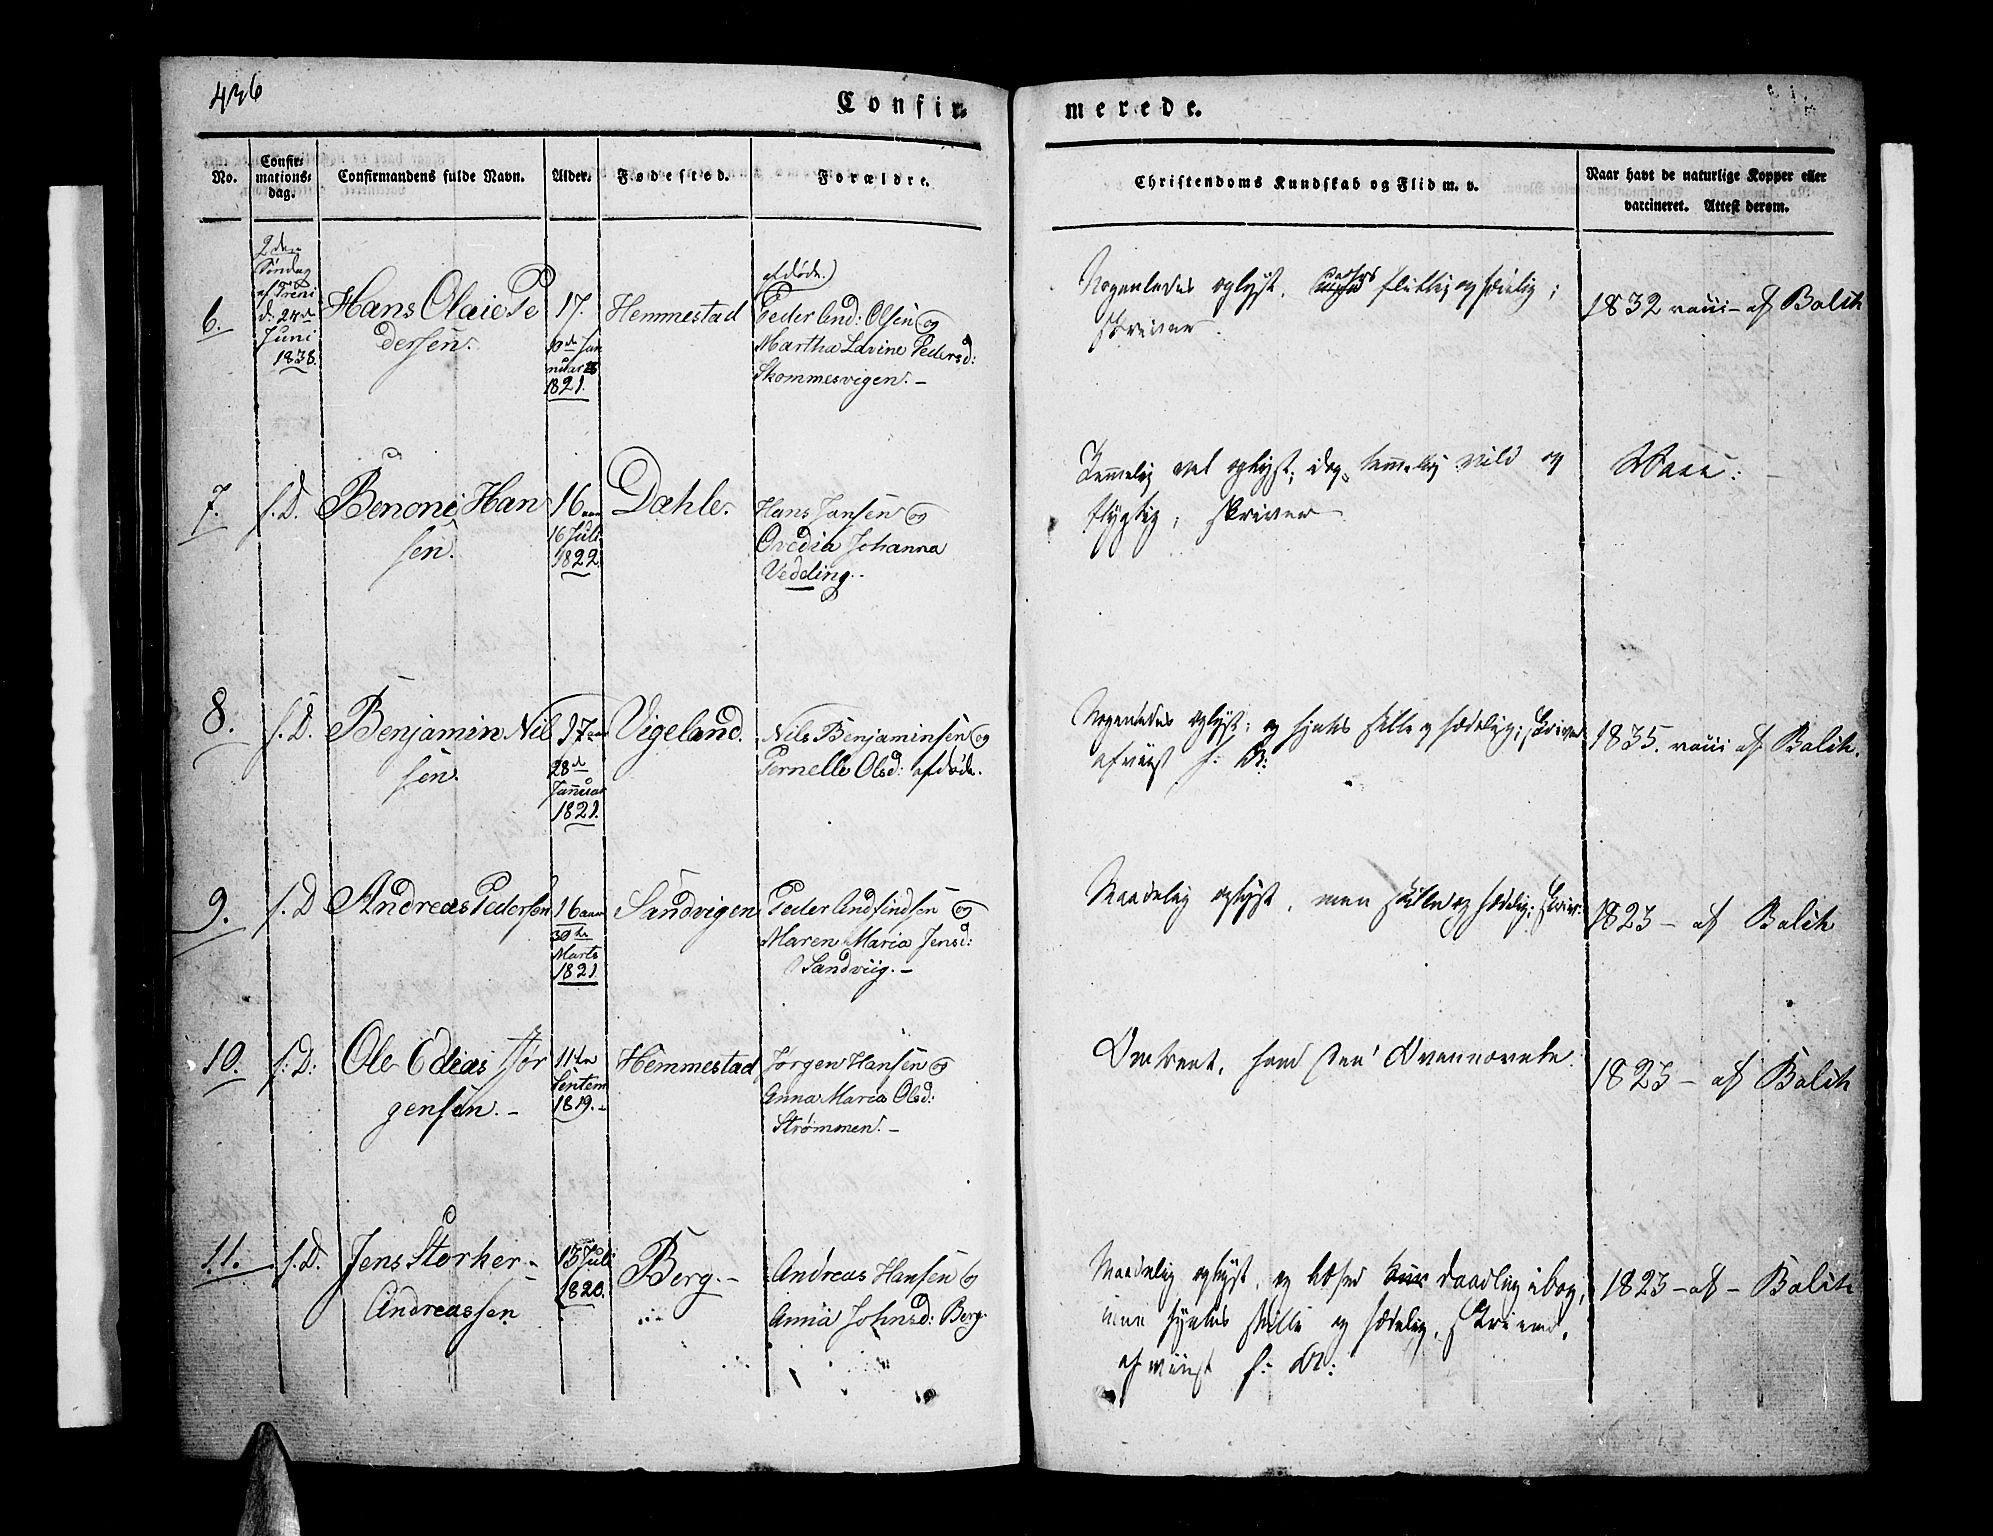 436
Confir-
merede.
No.
Confir-
mations-
dag.
Confirmandens fulde Navn.
Alder.
Fødested.
Forældre.
Christendoms Kundskab og Flid m. v.
Naar havt de naturlige Kopper eller
vaccineret. Attest derom.
6.
2den
Søndag
af Treni
d: 24de
Juni
1838.
Hans Olaie Pe
dersen.
17.
10de Jan
nuar
1821.
Hemmestad
afdøde.)
Peder And: Olsen og
Martha Lavine Pedersd:
Skommesvigen. -
Nogenledes oplyst, flittig og sædelig;
skriver.
1832 vacci- af Balch
7.
s. D.
Benoni Han
sen.
16 aar
16 Juli
1822.
Dæhle.
Hans Jansen og
Ovedia Johanna
Vedding.
Temmelig vel oplyst, dog temmelig vild og
flygtig; skriver
Vacc: -
8.
s. D.
Benjamin Nil
sen.
17 aar
28de
Januar
1821.
Vigeland.
Nils Benjaminsen og
Pernelle Olsd: afdøde.
Nogenledes oplyst; og synes stille og sædelig; skriver
1835. vacci af Balch.
9.
s. D
Andreas Pedersen
16 aar
30te
Marts
1821.
Sandvigen
Peder Andfindsen og
Maren Maria Jensd:
Sandviig. -
Maadelig oplyst, men stille og sædelig; skriv:
1823 - af Balch
10.
s: D:
Ole Edias Jør
gensen. -
11te
Septem
1819. -
Hemmestad
Jørgen Hansen og
Anna Maria Olsd:
Strømmen. -
Omtrent, som den Ovennævnte.
1823 - af Balch
11.
s. D.
Jens Storker
Andreassen
13 Juli
1820.
Berg. -
Andreas Hansen og
Anna Johnsd: Berg.
Maadelig oplyst, og læser daarlig i bog,
men synes stille og sædelig,
1823 - af - Balch